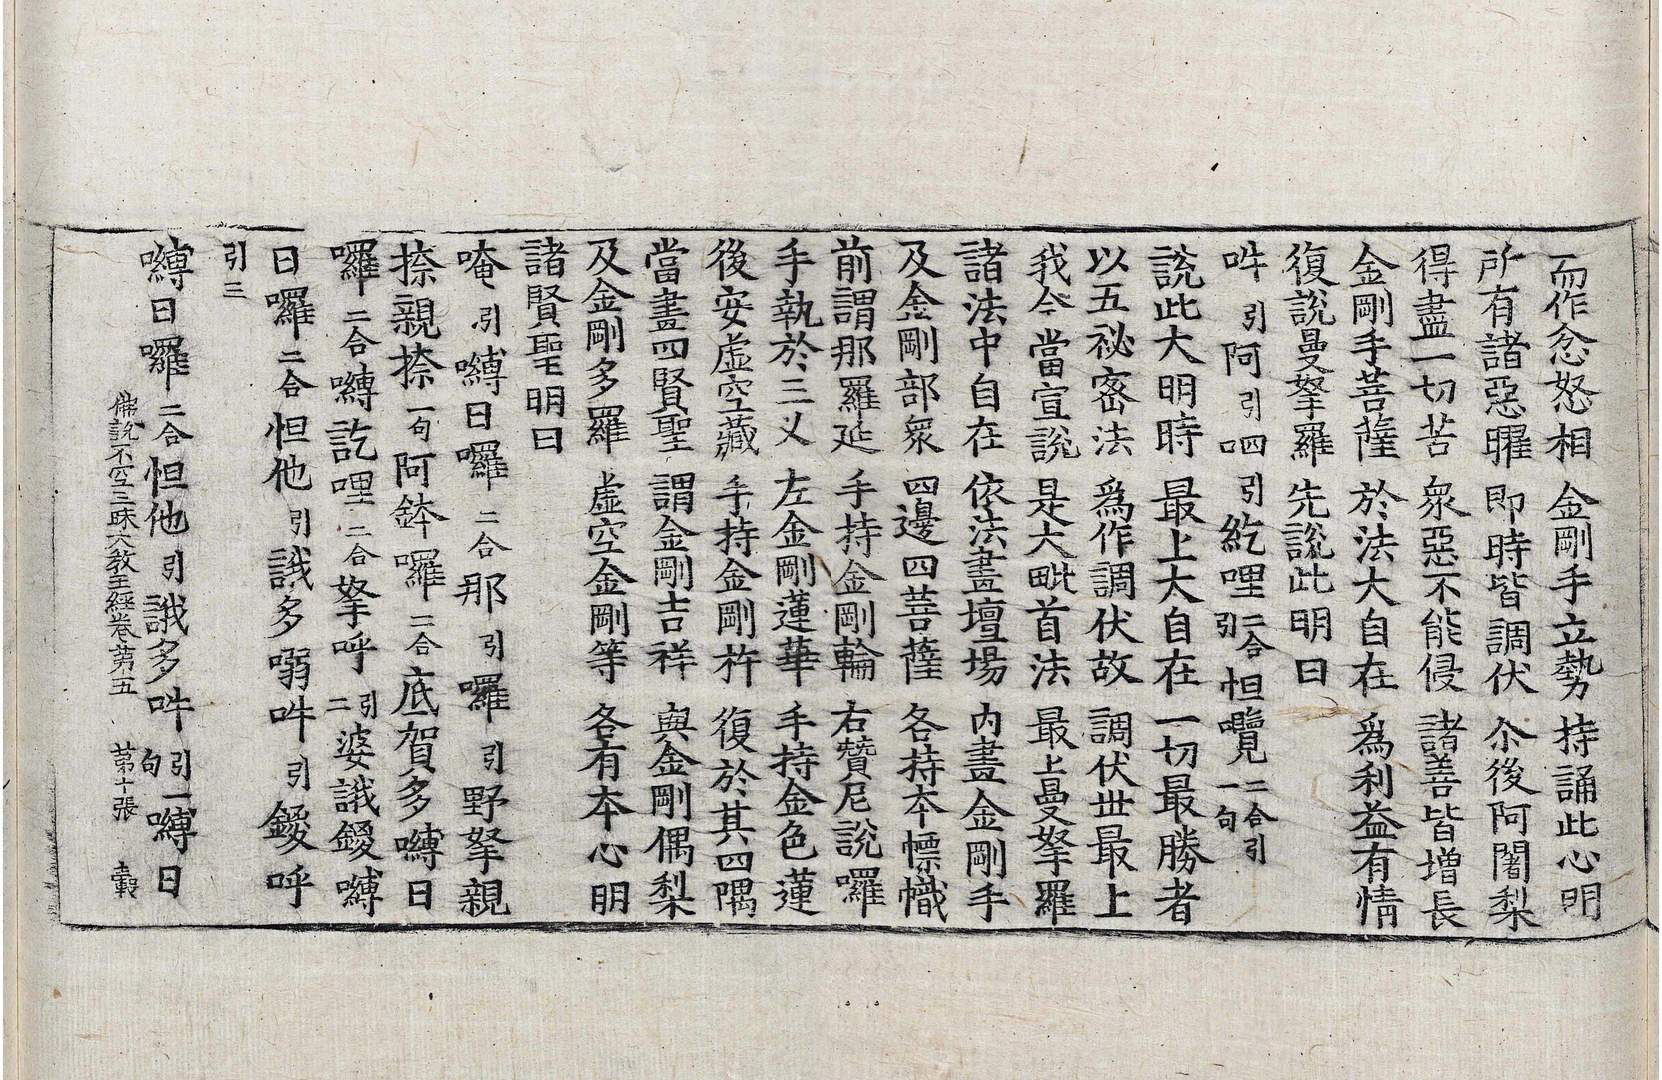 而作忿怒相　金剛手立勢　持誦此心明
所有諸惡曜　即時皆調伏　尒後阿闍梨
得盡一切苦　衆惡不能侵　諸善皆增長
金剛手菩薩　於法大自在　為利益有情
復說曼拏羅　先說此明曰
吽引阿引四引紇哩二合引怛囕二合引一句
說此大明時　最上大自在　一切最勝者
以五祕密法　為作調伏故　調伏世最上
我今當宣說　是大毗首法　最上曼拏羅
諸法中自在　依法畫壇場　內畫金剛手
及金剛部衆　四邊四菩薩　各持本幖幟
前謂那羅延　手持金剛輪　右贊尼說囉
手執於三叉　左金剛蓮華　手持金色蓮
後安虛空藏　手持金剛杵　復於其四隅
當畫四賢聖　謂金剛吉祥　與金剛偶梨
及金剛多羅　虛空金剛等　各有本心明
諸賢聖明曰
唵引嚩日囉二合那引囉引野拏親
捺親捺一句阿鉢囉二合底賀多嚩日
囉二合嚩訖哩二合拏呼引二婆誐鑁嚩
日囉二合怛他引誐多嗚吽引鑁呼
引三
嚩日囉二合怛他引誐多吽引一句嚩日
佛說不空三昧大教王經卷第五　第十張　轂